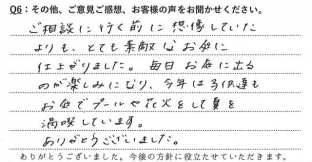 Q6：その他、ご意見ご感想、お客様の声をお聞かせください。
ご相談に行く前に想像していた
よりも、とても素敵なお庭に
仕上がりました。毎日お庭に出る
のが楽しみになり、今年は子供達も
お庭でプールや花火をして夏を
満喫しています。
ありがとうございました。
ありがとうございました。今後の方針に役立たせていただきます。